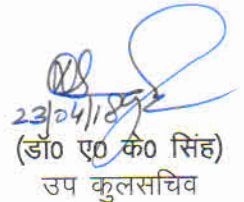 23/04/18
(डॉ0 ए0 के0 सिंह)
उप कुलसचिव